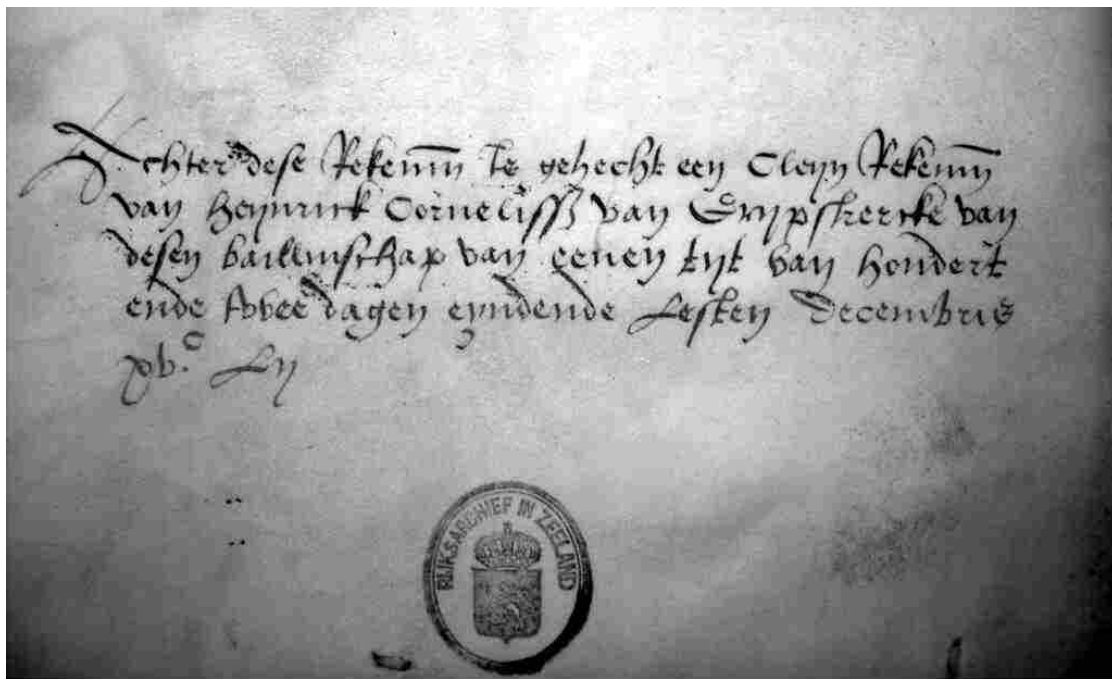 Achter dese Rekenin̄ Is gehecht een Cleyn Rekenin̄
van heynrick Cornelissz van Grypskercke van
desen bailliuschap van eenen tyt van hondert
ende twee dagen eyndende Lesten Decembris
xvc. Lij
RIJKSARCHIEF IN ZEELAND